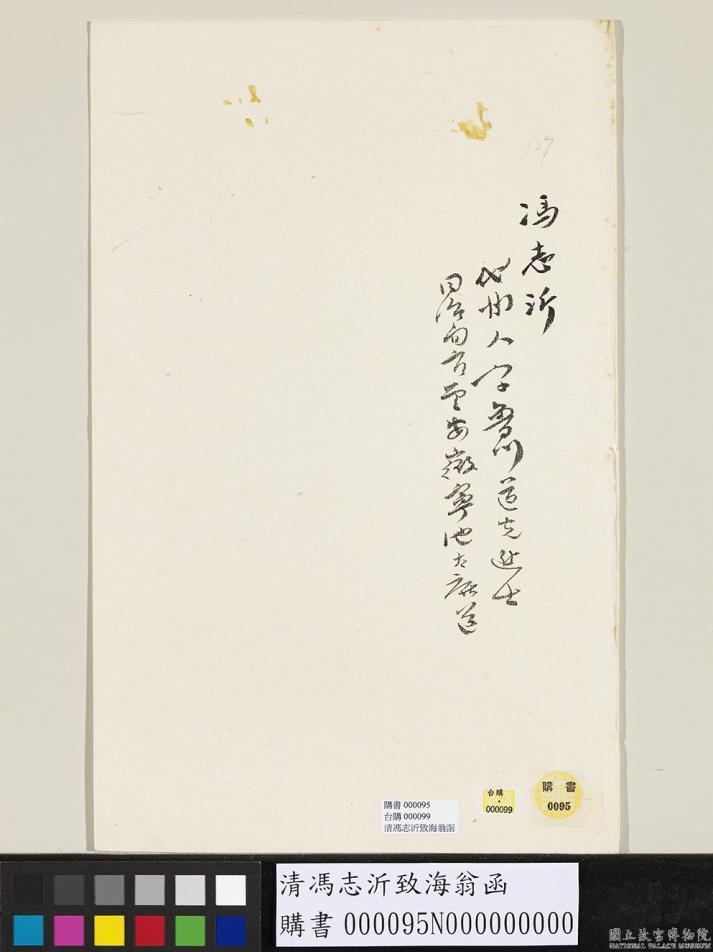 127
馮志沂
代州人字魯川道光進士
同治向官至安徽寧池太廣道
購書 000095
台購 000099
清馮志沂致海翁函
台購
000099
購書
0095
清馮志沂致海翁函
購書 000095N000000000
國立故宮博物院
NATIONAL PALACE MUSEUM